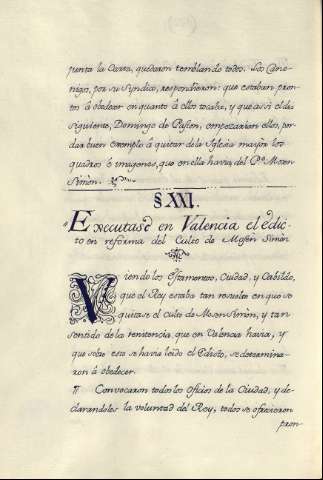 junta la Carta, quedaron temblando todos. Los Cano-
nigos, por su Syndico, respondieron: que estaban pron-
tos á obedecer en quanto á ellos tocaba, y que assi el dia
siguiente, Domingo de Pasion, empezarian ellos, por
dar buen exemplo á quitar de la Iglesia mayor los
quadros é imagenes, que en ella havia del Pe. Mosen
Simòn.
§ XXI.
Executase en Valencia el edic-
to en reforma del Culto de Mosèn Simòn
Viendo los Estamentos, Ciudad, y Cabildo,
que el Rey estaba tan resuelto en que se
quitase el Culto de Mosen Simòn, y tan
sentido de la renitencia, que en Valencia havia, y
que sobre esto se havia leido el Edicto, se determina-
ron á obedecer.
¶ Convocaron todos los Oficios de la Ciudad, y de-
clarandoles la voluntad del Rey, todos se ofrecieron
pron-